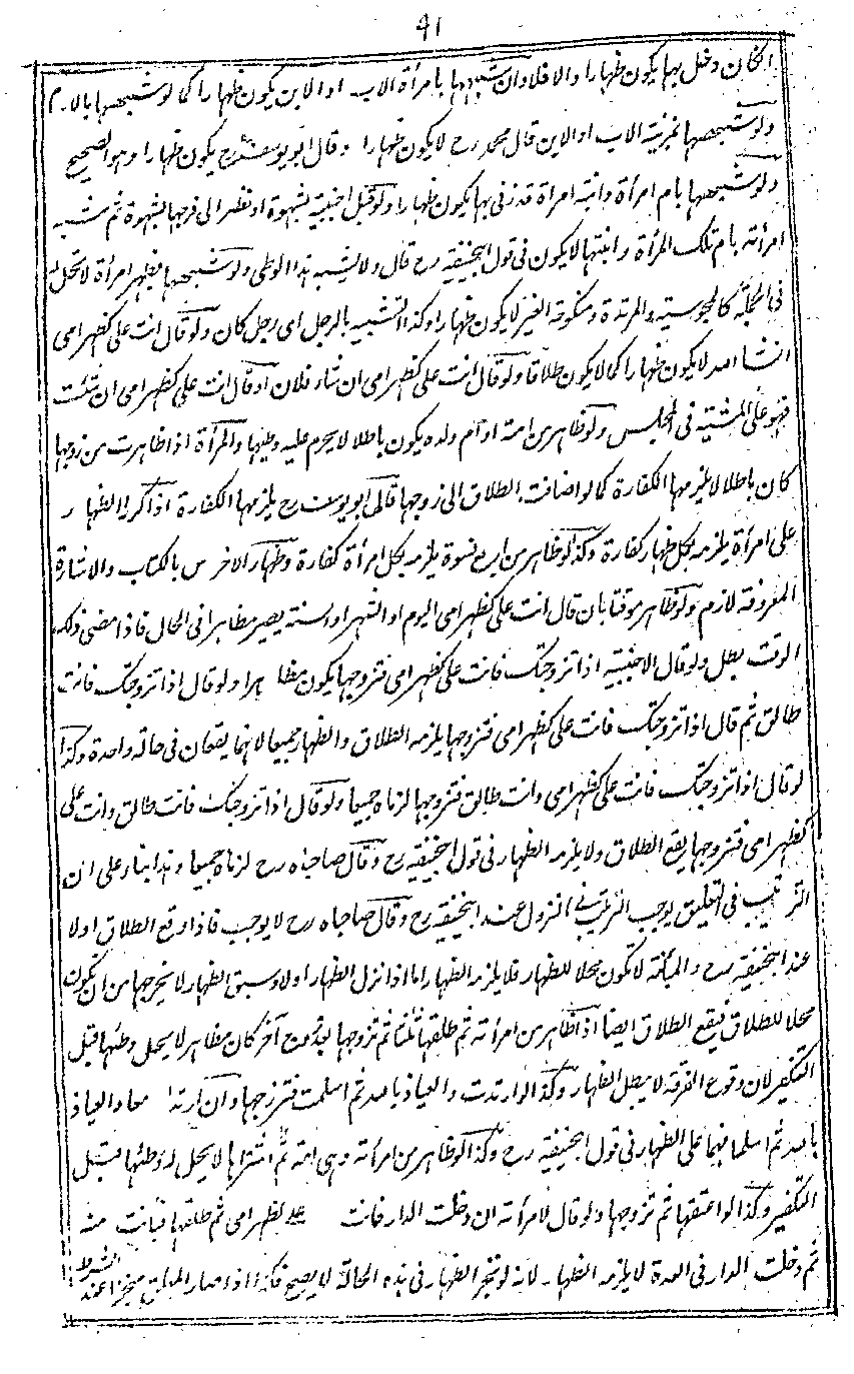 41
ان كان دخل بها يكون ظهارا والا فلا وان شبهها بامرأة الاب او الابن يكون ظهارا كما لو شبهها بالام
ولو شبهها بمزنية الاب او الابن قال محمد رح لا يكون ظهارا وقال ابو يوسف رح يكون ظهارا وهو الصحيح
ولو شبهها بام امرأة وابنة امرأة قد زنى بها يكون ظهارا ولو قبل اجنبية بشهوة او نظر الى فرجها بشهوة ثم شبه
امرأته بام تلك المرأة وابنتها لا يكون فى قول ابيحنيفة رح قال ولا يشبه هذا الوطى ولو شبهها بظهر امرأة لا تحل له
فى الجملة كالمجوسية والمرتدة ومنكوحة الغير لا يكون ظهارا وكذا التشبيه بالرجل اى رجل كان ولو قال انت على كظهر امى
انشا الله لا يكون ظهارا كما لا يكون طلاقا ولو قال انت على كظهر امى ان شاء فلان او قال انت على كظهر امى ان شئت
فهو على المشية فى المجلس ولو ظاهر من امته او ام ولده يكون باطلا لا يحرم عليه وطيها والمرأة اذا ظاهرت من زوجها
كان باطلا لا يلزمها الكفارة كما لو اضافت الطلاق الى زوجها قال ابو يوسف رح يلزمها الكفارة اذا كرر الظهار
على امرأة يلزمه بكل ظهار كفارة وكذا لو ظاهر من اربع نسوة يلزمه بكل امرأة كفارة وظهار الاخرس بالكتاب والاشارة
المعروفة لازم ولو ظاهر موقتا بان قال انت على كظهر امى اليوم او الشهر او السنة يصير مظاهرا فى الحال فاذا مضى ذلك
الوقت بطل ولو قال لاجنبية اذا تزوجتك فانت على كظهر امى فتزوجها يكون مظاهرا ولو قال اذا تزوجتك فانت
طالق ثم قال اذا تزوجتك فانت على كظهر امى فتزوجها يلزمه الطلاق والظهار جميعا لانهما يقعان فى حالة واحدة وكذا
لو قال اذا تزوجتك فانت على كظهر امى وانت طالق فتزوجها لزماه جميعا ولو قال اذا تزوجتك فانت طالق وانت على
كظهر امى فتزوجها يقع الطلاق ولا يلزمه الظهار فى قول ابيحنيفة رح وقال صاحباه رح لزماه جميعا وهذا بناء على ان
الترتيب فى التعليق يوجب الترتيب فى النزول عند ابيحنيفة رح وقال صاحباه رح لا يوجب فاذا وقع الطلاق اولا
عند ابيحنيفة رح والمبانة لا تكون محلا للظهار فلا يلزمه الظهار اما اذا نزل الظهار اولا وسبق الظهار لا يخرجها من ان تكون
محلا للطلاق فيقع الطلاق ايضا اذا ظاهر من امرأته ثم طلقها ثلثا ثم تزوجها بعد زوج آخر كان مظاهرا لا يحل وطئها قبل
التكفير لان وقوع الفرقة لا يبطل الظهار وكذا لو ارتدت والعياذ بالله ثم اسلمت فتزوجها وان ارتدا معا والعياذ
بالله ثم اسلما فهما على الظهار فى قول ابيحنيفة رح وكذا لو ظاهر من امرأته وهى امة ثم اشتراها لا يحل له وطئها قبل
التكفير وكذا لو اعتقها ثم تزوجها ولو قال لامرأته ان دخلت الدار فانت على كظهر امى ثم طلقها فبانت منه
ثم دخلت الدار فى العدة لا يلزمه الظهار لانه لو نجز الظهار فى هذه الحالة لا يصح فكذا اذا صار المعلق منجزا عند الشرط